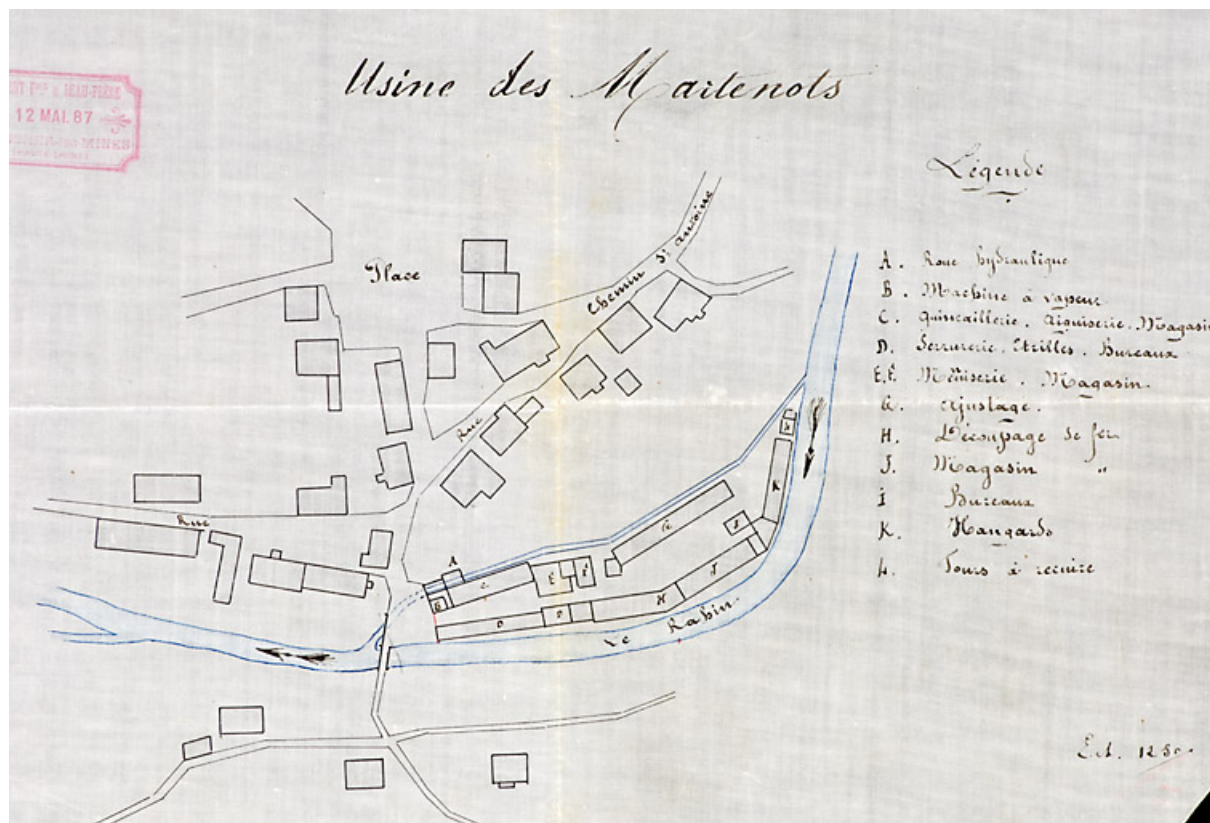 Usine des Martenots
12 MAI. 87
MINES
Légende
A. Roue hydraulique
B. Machine à vapeur
C. Quincaillerie. Aiguiserie. Magasin
D. Serrurerie. Etrilles. Bureaux
E,É. Menuiserie. Magasin.
G. Ajustage.
H. Découpage de fer
J. Magasin "
I Bureaux
K. Hangards
L. Fours à recuire
Place
Chemin St Antoine
Rue
Rue
A
B
C
E
É
G
K
J
H
D
Le Rabin